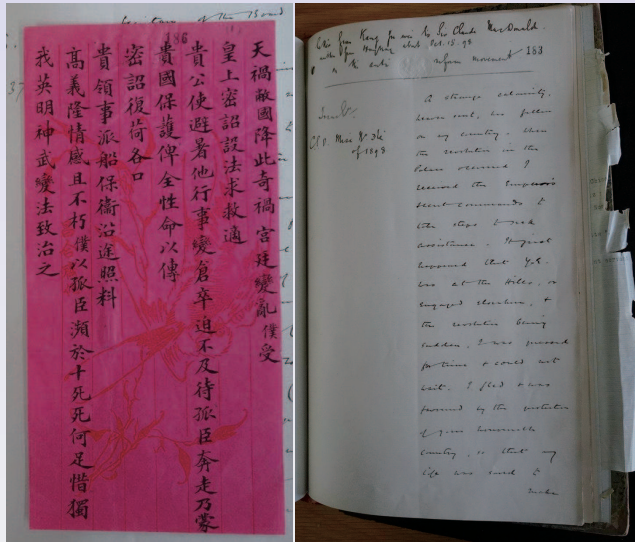 186
天禍敝國降此奇禍宮廷變亂僕受
皇上密詔設法求救適
貴公使避暑他行事變倉卒迫不及待孤臣奔走乃蒙
貴國保護俾全性命以傳
密詔復荷各口
貴領事派船保衞沿途照料
高義隆情感且不朽僕以孤臣瀕於十死死何足惜獨
我英明神武變法致治之
of the
from Kang Yu wei to Sir Claude MacDonald
written from Hongkong about Oct. 15. 98
reform movement 183
of 1898
A strange calamity,
heaven sent, has fallen
on my country. When
the revolution in the
Palace occurred I
received the Emperor's
secret commands to
take steps to seek
assistance. It just
happened that Y.E.
was at the Hills, or
engaged elsewhere, &
the revolution being
sudden, I was pressed
for time & could not
wait. I fled & was
favoured by the protection
of your honourable
country, so that my
life was saved to
make